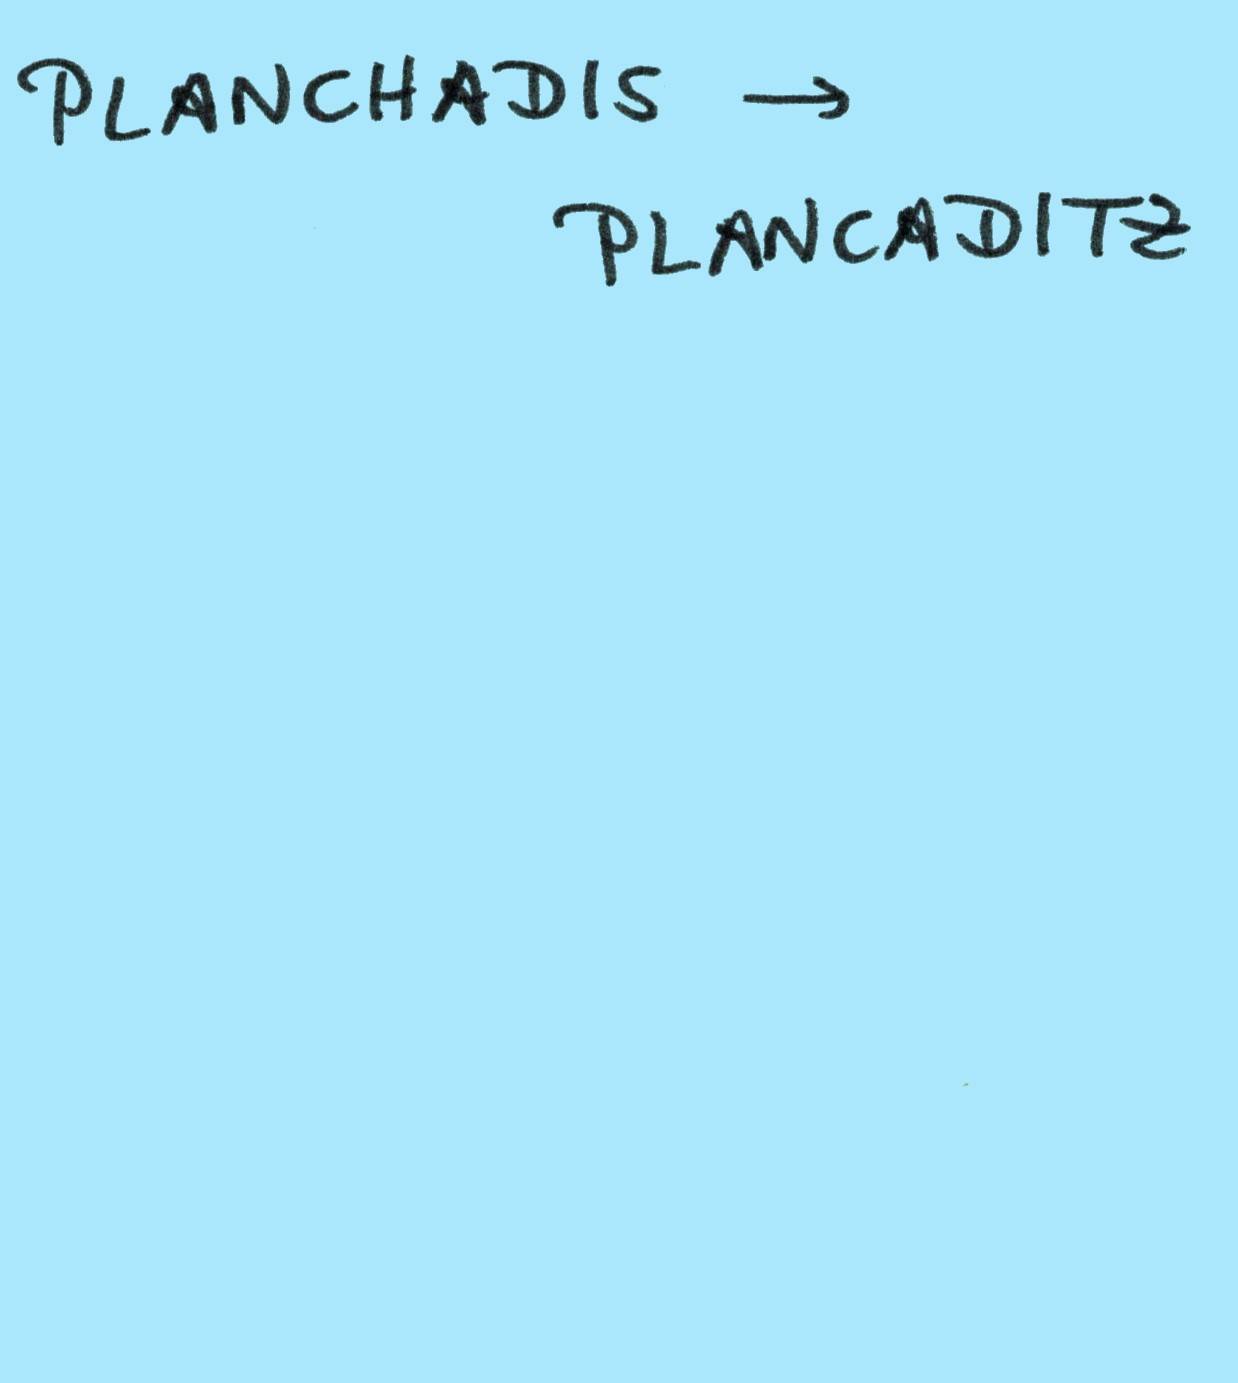 PLANCHADIS →
PLANCADITZ